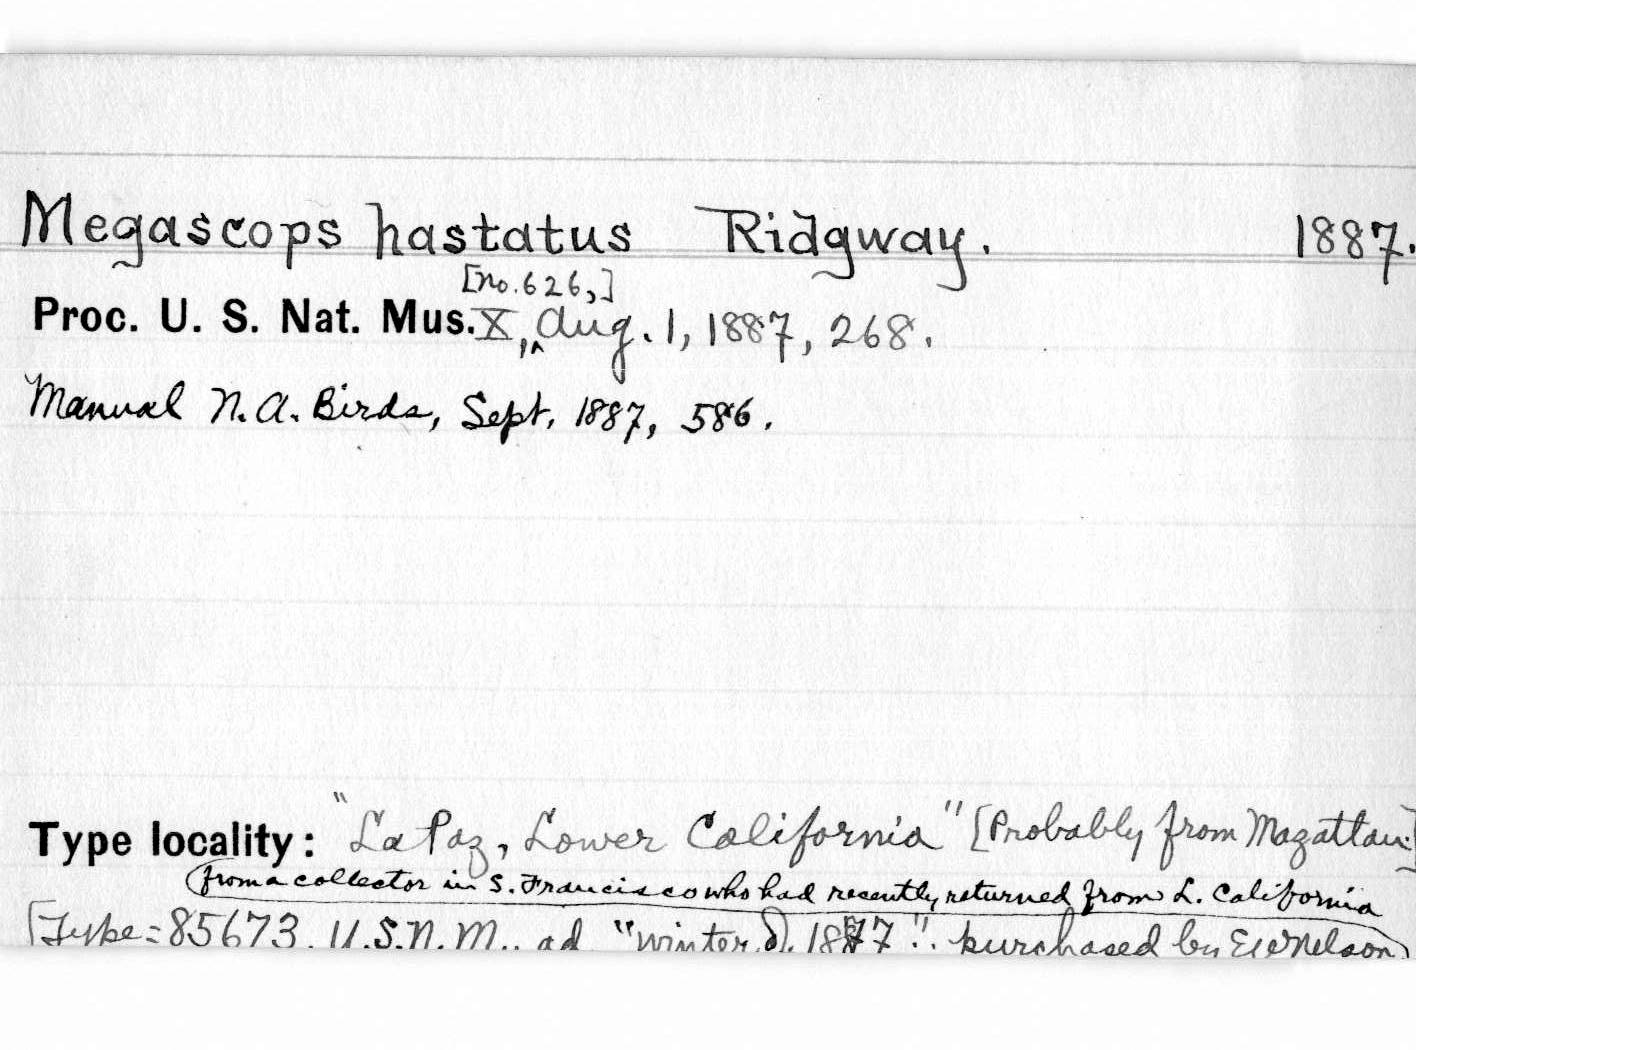 Megascops hastatus Ridgway. 1887.
[no. 626,]
Proc. U. S. Nat. Mus. X, ^ Aug. 1, 1887, 268.
Manual N. A. Birds, Sept. 1887, 586.
Type locality: "La Paz, Lower California" [Probably from Mazattan.]
from a collector in S. Francisco who had recently returned from L. California
[Type = 85673, U.S.N.M., ad "winter of 1877". purchased by EW Nelson